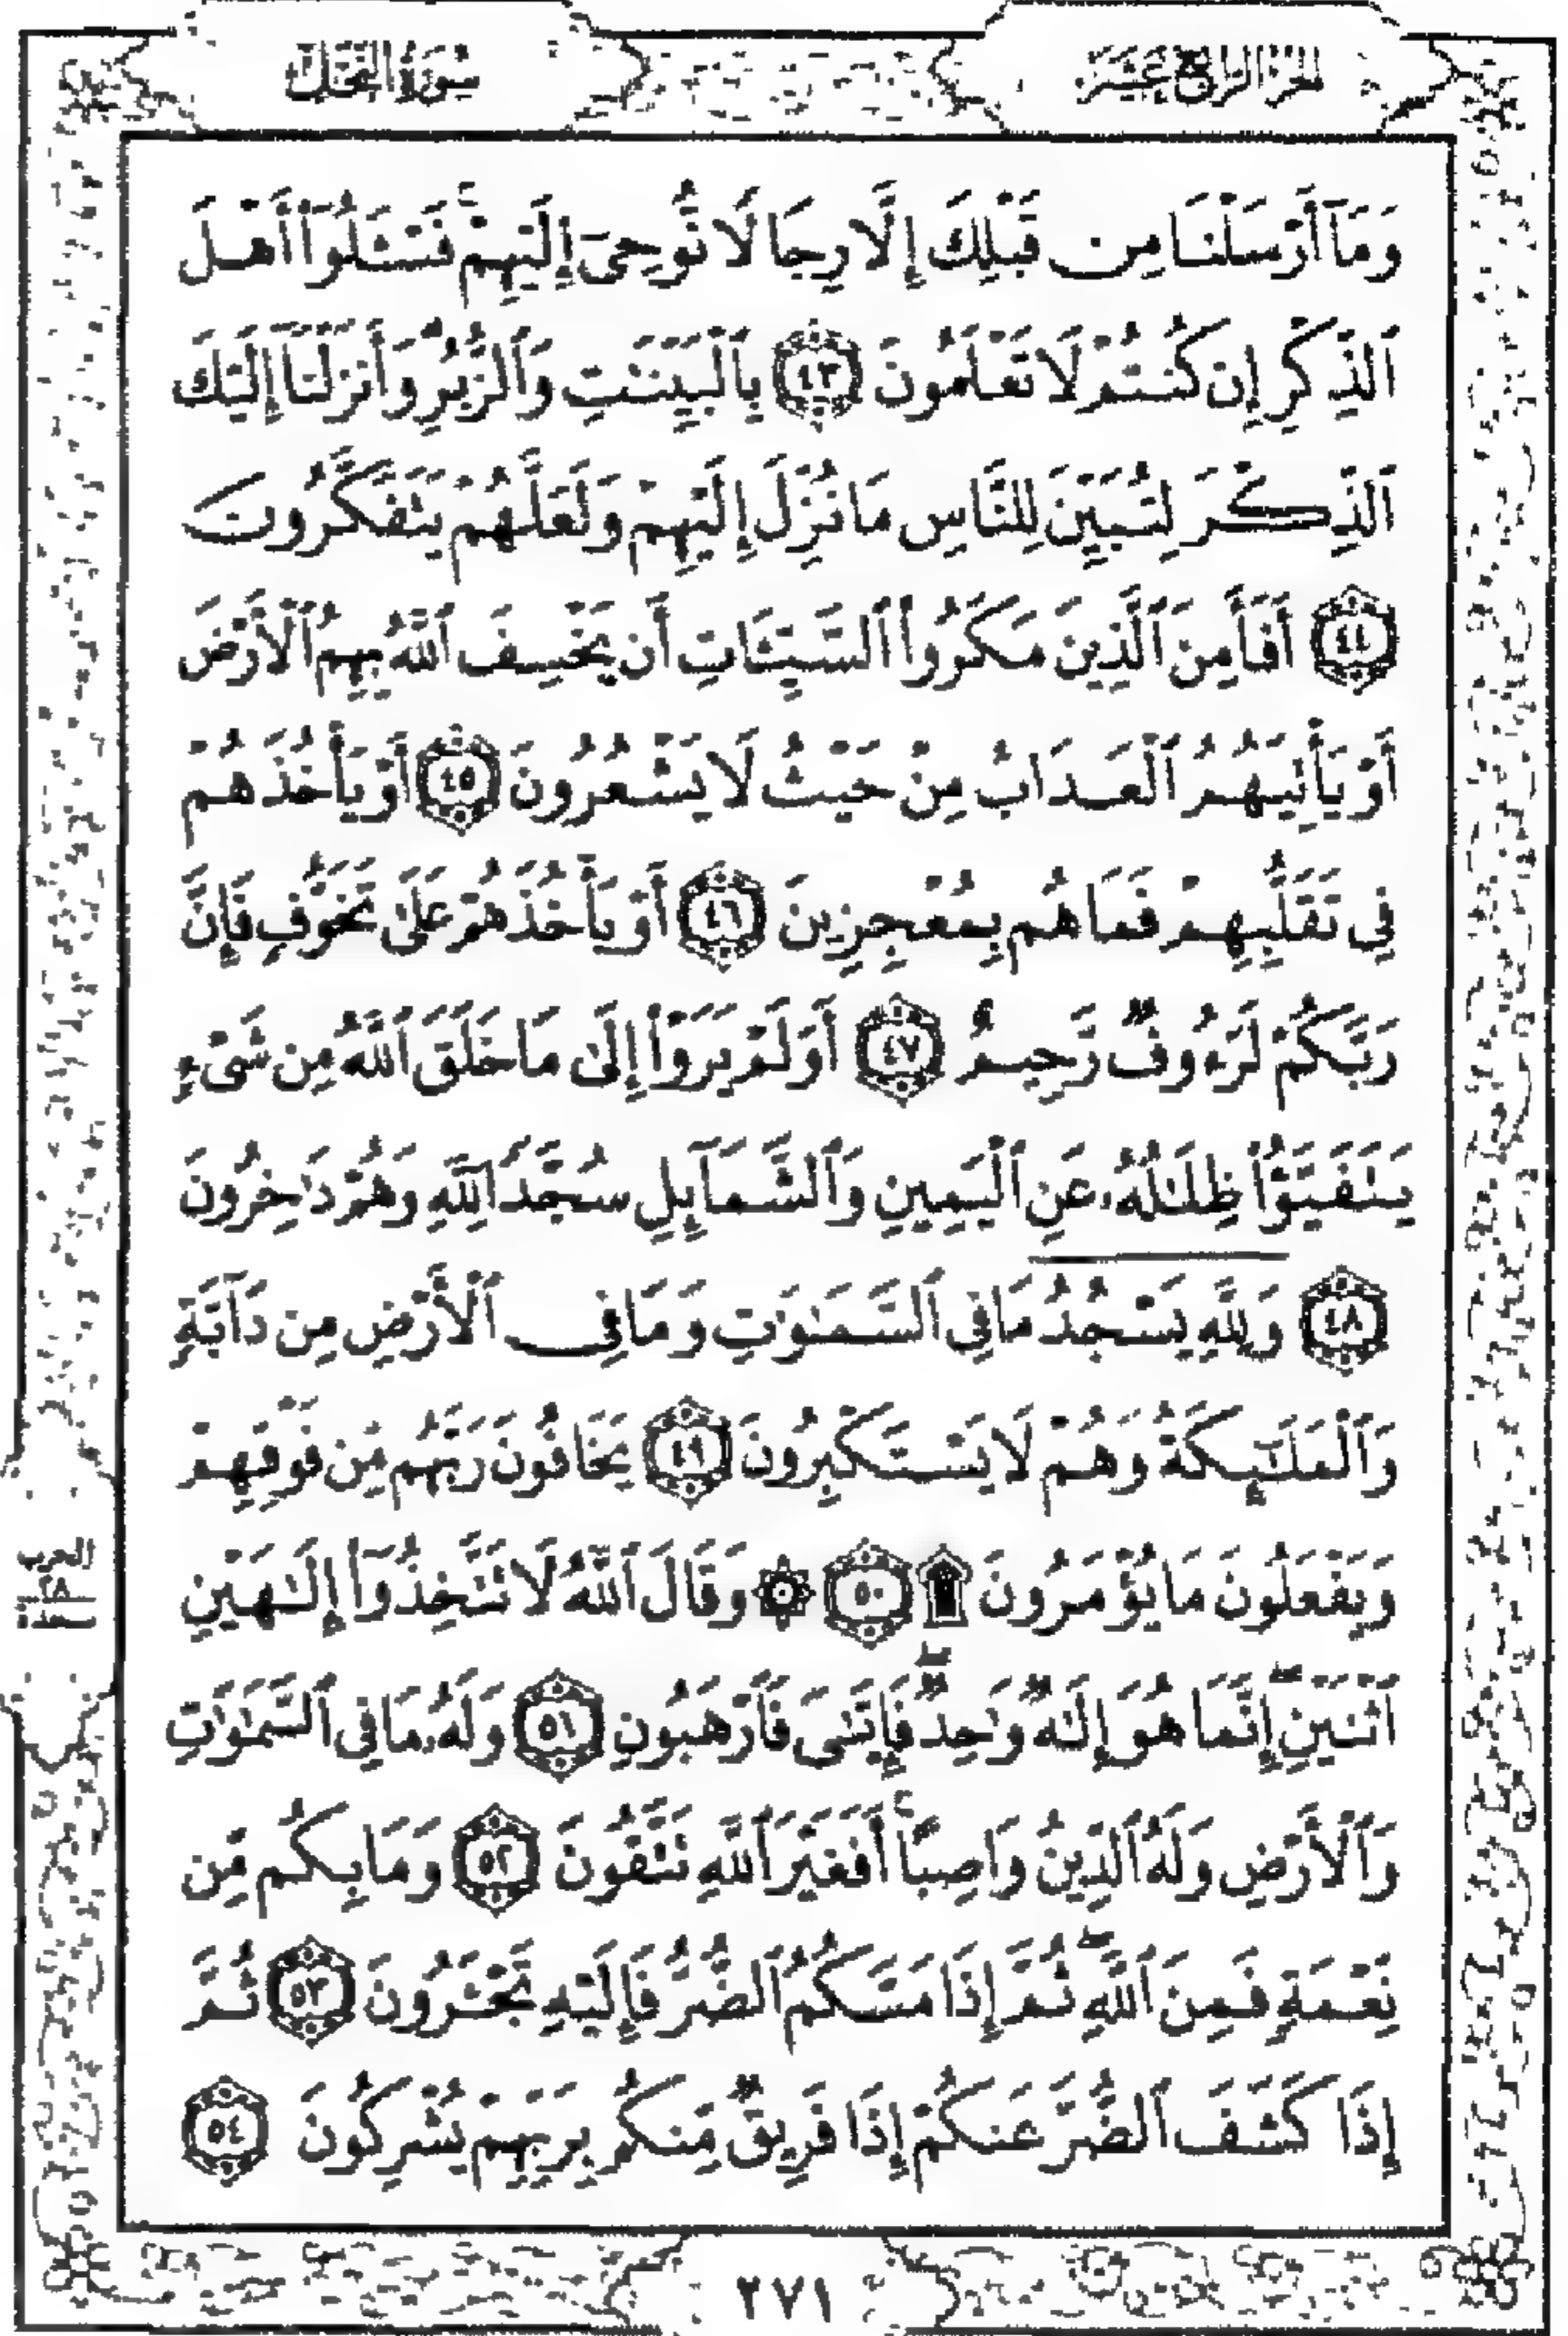 الجزء الرابع عشر
سورة النحل
وَمَآ أَرْسَلْنَا مِن قَبْلِكَ إِلَّا رِجَالًا نُّوحِىٓ إِلَيْهِمْ ۚ فَسْـَٔلُوٓا۟ أَهْلَ
ٱلذِّكْرِ إِن كُنتُمْ لَا تَعْلَمُونَ ٤٣ بِٱلْبَيِّنَـٰتِ وَٱلزُّبُرِ ۗ وَأَنزَلْنَآ إِلَيْكَ
ٱلذِّكْرَ لِتُبَيِّنَ لِلنَّاسِ مَا نُزِّلَ إِلَيْهِمْ وَلَعَلَّهُمْ يَتَفَكَّرُونَ
٤٤ أَفَأَمِنَ ٱلَّذِينَ مَكَرُوا۟ ٱلسَّيِّـَٔاتِ أَن يَخْسِفَ ٱللَّهُ بِهِمُ ٱلْأَرْضَ
أَوْ يَأْتِيَهُمُ ٱلْعَذَابُ مِنْ حَيْثُ لَا يَشْعُرُونَ ٤٥ أَوْ يَأْخُذَهُمْ
فِى تَقَلُّبِهِمْ فَمَا هُم بِمُعْجِزِينَ ٤٦ أَوْ يَأْخُذَهُمْ عَلَىٰ تَخَوُّفٍ فَإِنَّ
رَبَّكُمْ لَرَءُوفٌ رَّحِيمٌ ٤٧ أَوَلَمْ يَرَوْا۟ إِلَىٰ مَا خَلَقَ ٱللَّهُ مِن شَىْءٍ
يَتَفَيَّؤُا۟ ظِلَـٰلُهُۥ عَنِ ٱلْيَمِينِ وَٱلشَّمَآئِلِ سُجَّدًا لِّلَّهِ وَهُمْ دَٰخِرُونَ
٤٨ وَلِلَّهِ يَسْجُدُ مَا فِى ٱلسَّمَـٰوَٰتِ وَمَا فِى ٱلْأَرْضِ مِن دَآبَّةٍ
وَٱلْمَلَـٰٓئِكَةُ وَهُمْ لَا يَسْتَكْبِرُونَ ٤٩ يَخَافُونَ رَبَّهُم مِّن فَوْقِهِمْ
وَيَفْعَلُونَ مَا يُؤْمَرُونَ ۩ ٥٠ ۞ وَقَالَ ٱللَّهُ لَا تَتَّخِذُوٓا۟ إِلَـٰهَيْنِ
ٱثْنَيْنِ ۖ إِنَّمَا هُوَ إِلَـٰهٌ وَٰحِدٌ ۖ فَإِيَّـٰىَ فَٱرْهَبُونِ ٥١ وَلَهُۥ مَا فِى ٱلسَّمَـٰوَٰتِ
وَٱلْأَرْضِ وَلَهُ ٱلدِّينُ وَاصِبًا ۚ أَفَغَيْرَ ٱللَّهِ تَتَّقُونَ ٥٢ وَمَا بِكُم مِّن
نِّعْمَةٍ فَمِنَ ٱللَّهِ ۖ ثُمَّ إِذَا مَسَّكُمُ ٱلضُّرُّ فَإِلَيْهِ تَجْـَٔرُونَ ٥٣ ثُمَّ
إِذَا كَشَفَ ٱلضُّرَّ عَنكُمْ إِذَا فَرِيقٌ مِّنكُم بِرَبِّهِمْ يُشْرِكُونَ ٥٤
الحزب
٢٨
٢٧١